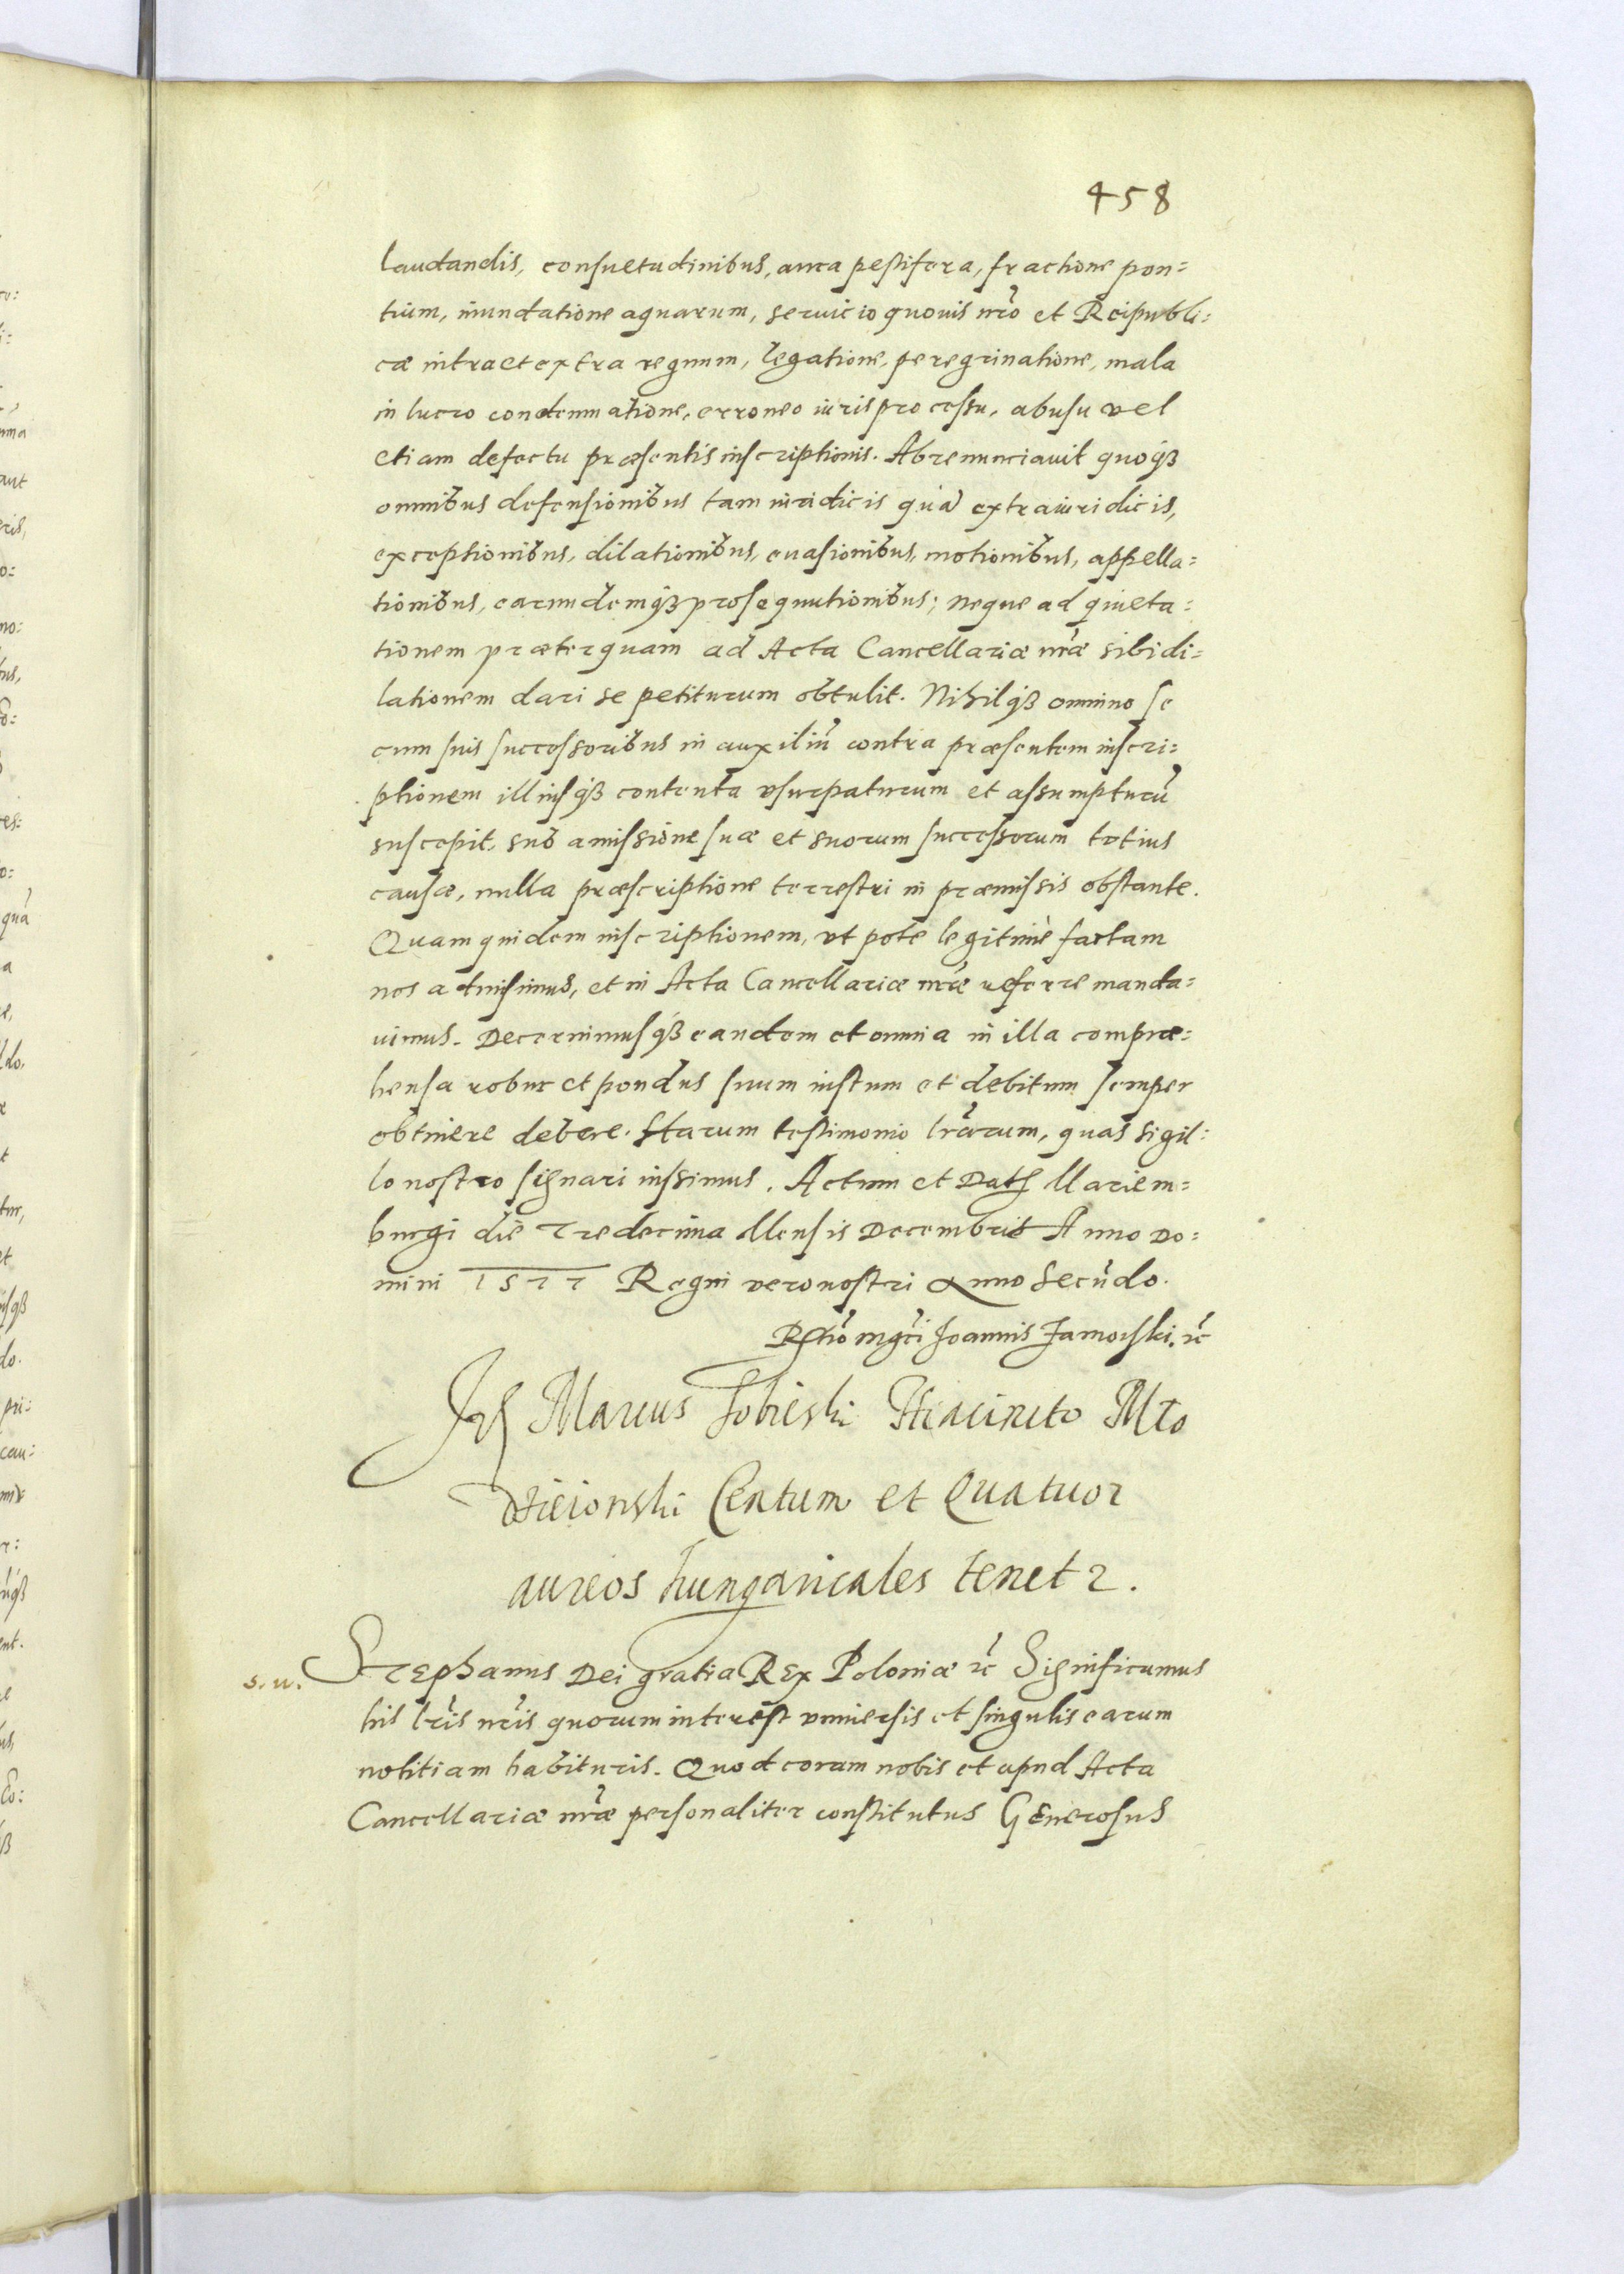 458
laudandis, consuetudinibus, aura pestifera, fractione pon=
tium, inundatione aquarum, seruicio quouis nr̃o et Reipubli=
cæ intra et extra regnum, legatione, peregrinatione, mala
in lucro condemnatione, erroneo iuris processu, abusu vel
etiam defectu præsentis inscriptionis. Abrenunciauit quoqȝ
omnibus defensionibus tam iuridicis quã extraiuridicis,
exceptionibus, dilationibus, euasionibus, motionibus, appella=
tionibus, earundemqȝ prosequutionibus; neque ad quieta=
tionem præterquam ad Acta Cancellariæ nr̃æ sibi di=
lationem dari se petiturum obtulit. Nihilqȝ omnino se
cum suis successoribus in auxiliũ contra præsentem inscri=
ptionem illiusqȝ contenta vsurpaturum et assumpturũ
suscepit, sub amissione suæ et suorum successorum totius
causæ, nulla præscriptione terrestri in præmissis obstante.
Quam quidem inscriptionem, vt pote legitimè factam
nos admisimus, et in Acta Cancellariæ nr̃æ referre manda=
uimus. Decernimusqȝ eandem et omnia in illa compræ=
hensa robur et pondus suum iustum et debitum semper
obtinere debere. Harum testimonio lr̃arum, quas sigil=
lo nostro signari iussimus. Actum et Datȝ Mariem=
burgi die Tredecima Mensis Decembris Anno Do=
mini 1577 Regni vero nostri Anno Secũdo.
Rĩo mgci Joannis Zamoyski. ꝛc̃
Marcus Sobieski Hiacinto Mło
dzieiowski Centum et Quatuor
aureos hungaricales tenetꝛ.
S. u.
Stephanus Dei gratia Rex Poloniæ ꝛc̃ Significamus
his lr̃is nr̃is quorum interest vniuersis et singulis earum
notitiam habituris. Quod coram nobis et apud Acta
Cancellariæ nr̃æ personaliter constitutus Generosus